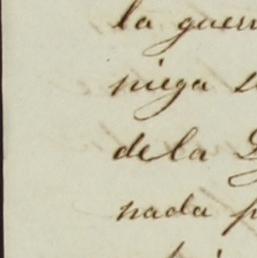 la guerr
niega s
de la
nada p